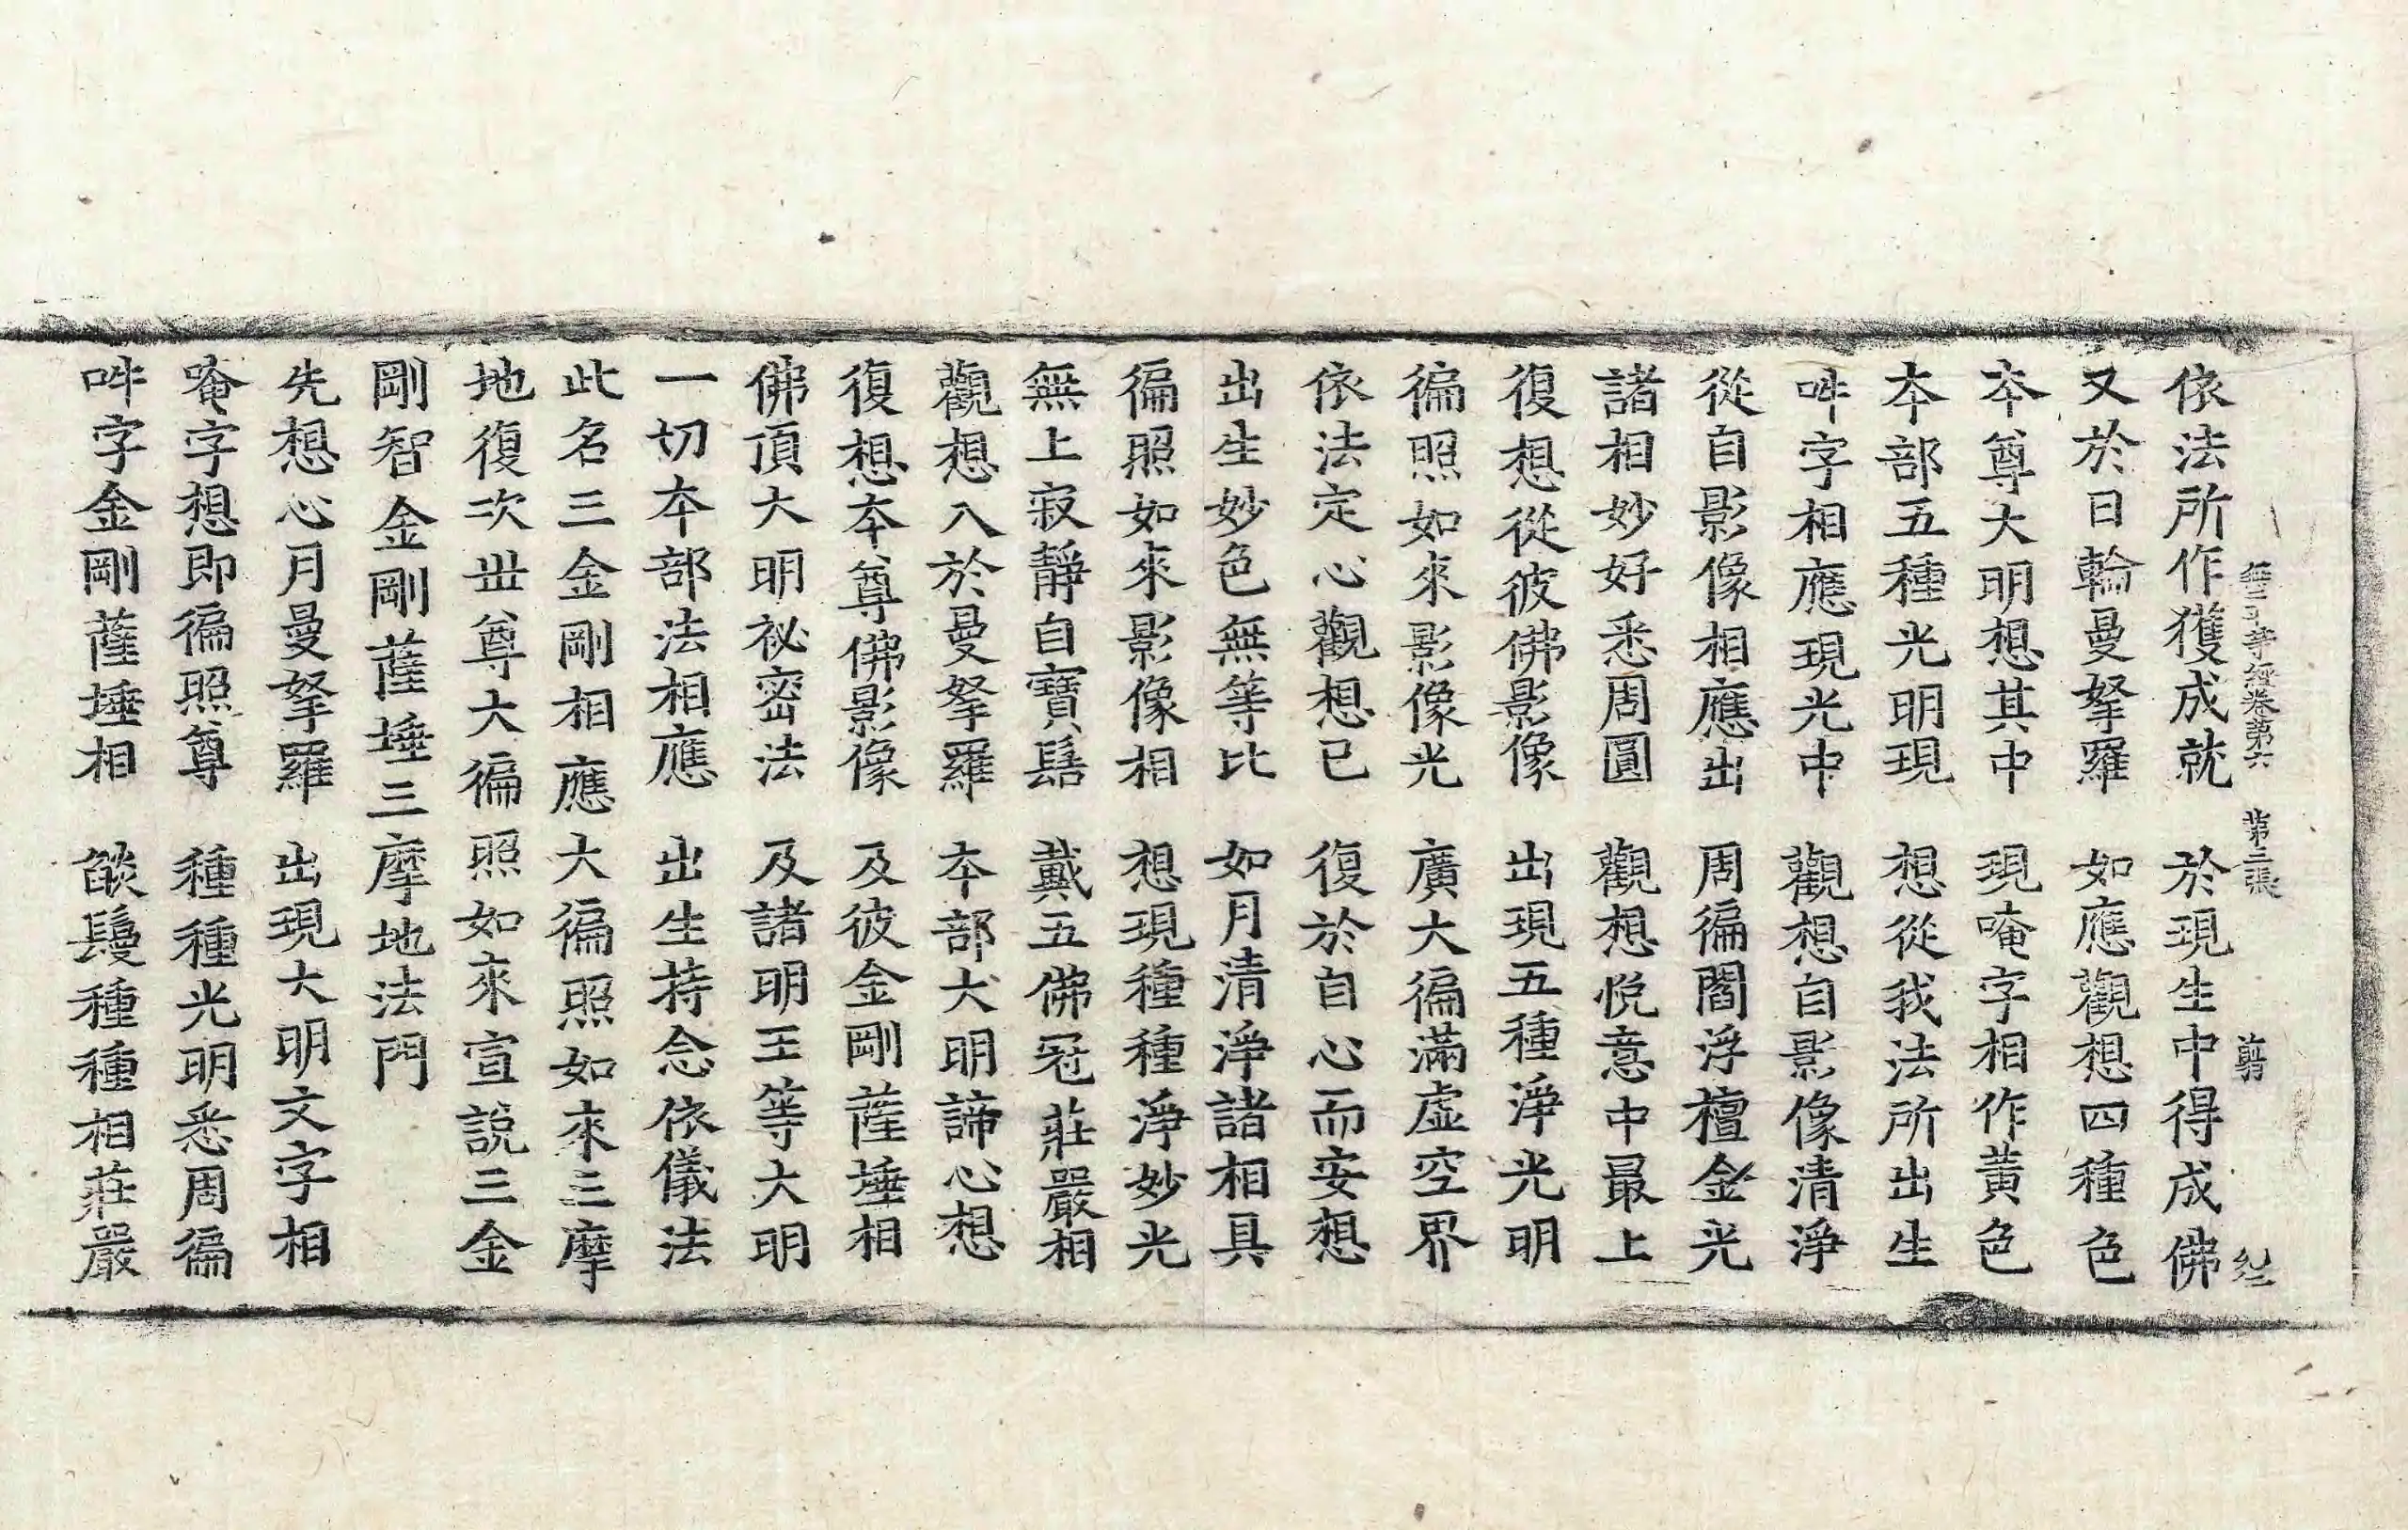 依法所作獲成就　於現生中得成佛
無二平等經卷第六　第三張　剪
又於日輪曼拏羅　如應觀想四種色
本尊大明想其中　現唵字相作黃色
本部五種光明現　想從我法所出生
吽字相應現光中　觀想自影像清淨
從自影像相應出　周徧閻浮檀金光
諸相妙好悉周圓　觀想悅意中最上
復想從彼佛影像　出現五種淨光明
徧照如來影像光　廣大徧滿虛空界
依法定心觀想已　復於自心而安想
出生妙色無等比　如月清淨諸相具
徧照如來影像相　想現種種淨妙光
無上寂靜自寶髻　戴五佛冠莊嚴相
觀想入於曼拏羅　本部大明諦心想
復想本尊佛影像　及彼金剛薩埵相
佛頂大明祕密法　及諸明王等大明
一切本部法相應　出生持念依儀法
此名三金剛相應大徧照如來三摩
地復次世尊大徧照如來宣說三金
剛智金剛薩埵三摩地法門
先想心月曼拏羅　出現大明文字相
唵字想即徧照尊　種種光明悉周徧
吽字金剛薩埵相　燄鬘種種相莊嚴